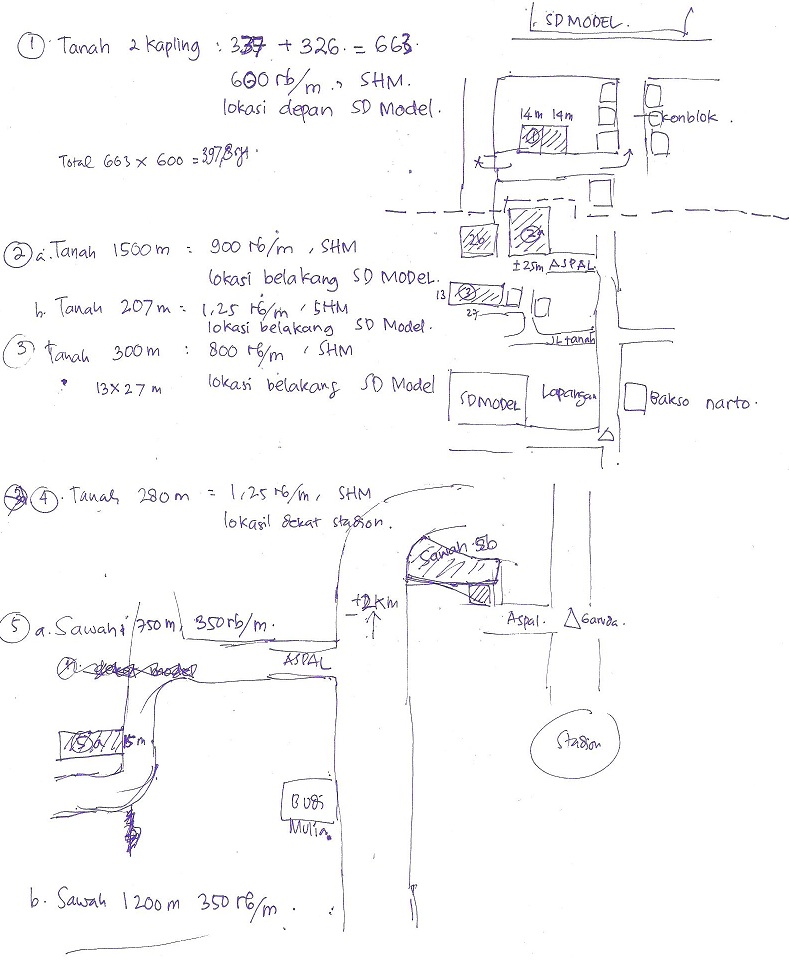 SD MODEL.
① Tanah 2 Kapling : 337 + 326. = 663.
600 rb/m., SHM.
lokasi depan SD Model.
Total 663 x 600 =
14m 14m
①
konblok.
② a. Tanah 1500 m = 900 rb/m, SHM
lokasi belakang SD MODEL.
b. Tanah 207 m = 1,25 rb/m, SHM
lokasi belakang SD Model.
③ Tanah 300 m : 800 rb/m, SHM
13 x 27 m lokasi belakang SD Model
2b
2a
±25m ASPAL
13
③
27
JL tanah
SD MODEL
Lapangan
Bakso narto.
④. Tanah 280 m = 1,25 rb/m, SHM
lokasi dekat stadion.
Sawah 5b
Aspal.
Garuda.
Stadion
±2 Km
⑤ a. Sawah 750 m, 350 rb/m.
ASPAL
5a
15 m
Budi
Mulia.
b. Sawah 1200 m 350 rb/m.